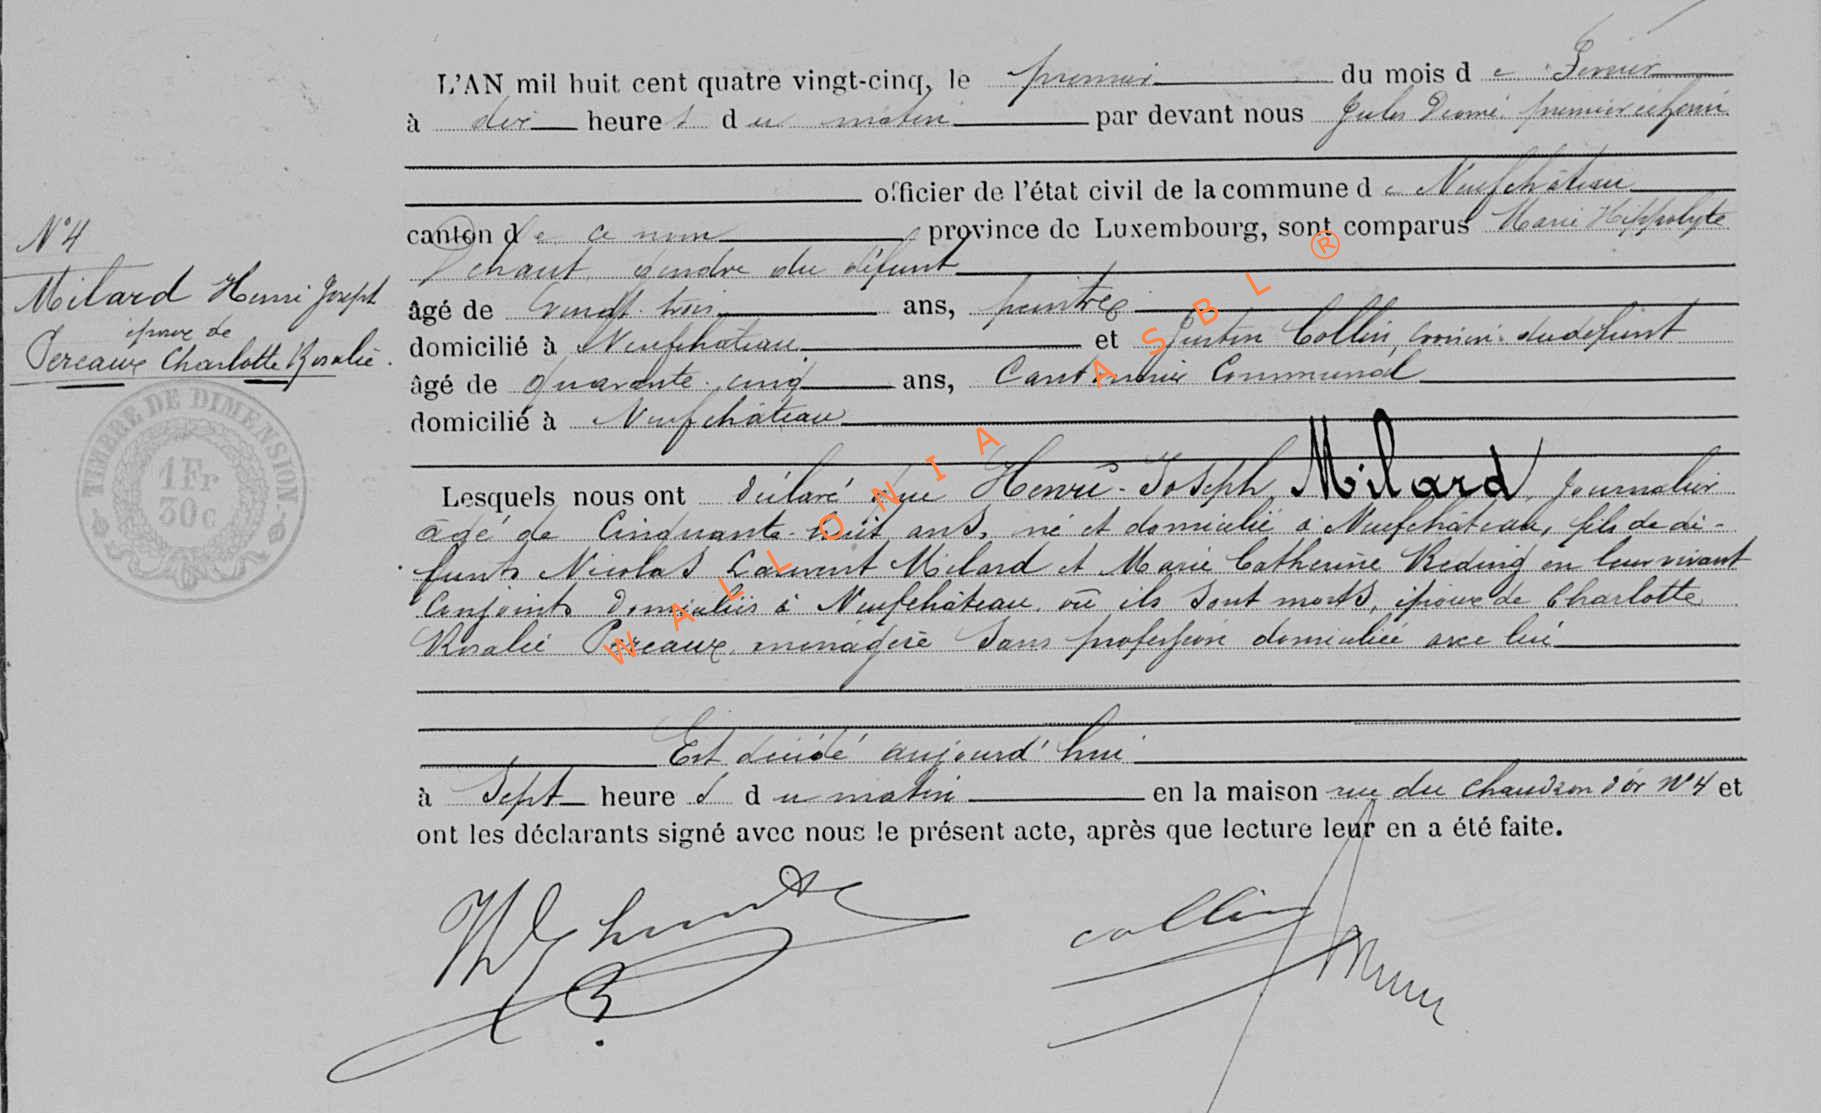 L'AN mil huit cent quatre vingt-cinq, le premier du mois de Février
à dix heures du matin par devant nous Jules premier échevin
officier de l'état civil de la commune de Neufchâteau
canton de ce nom, province de Luxembourg, sont comparus Marie Hippolyte
gendre du défunt
âgé de Vingt-trois ans, peintre
domicilié à Neufchâteau et Justin Collin, cousin du défunt
âgé de quarante-cinq ans, Cantonnier Communal
domicilié à Neufchâteau
N° 4
Milard Henri Joseph
époux de
Pereaux Charlotte Rosalie.
TIMBRE DE DIMENSION
1 Fr
30 c
Lesquels nous ont déclaré que Henri-Joseph Milard, Journalier
âgé de Cinquante-huit ans, né et domicilié à Neufchâteau, fils de dé-
funts Nicolas Laurent Milard et Marie Catherine Reding en leur vivant
Conjoints domiciliés à Neufchâteau où ils sont morts, époux de Charlotte
Rosalie Pereaux, ménagère sans profession domiciliée avec lui
Est décédé aujourd'hui
à Sept heures du matin en la maison rue du Chaudron d'or N° 4 et
ont les déclarants signé avec nous le présent acte, après que lecture leur en a été faite.
Collin
WALLONIA ASBL ®